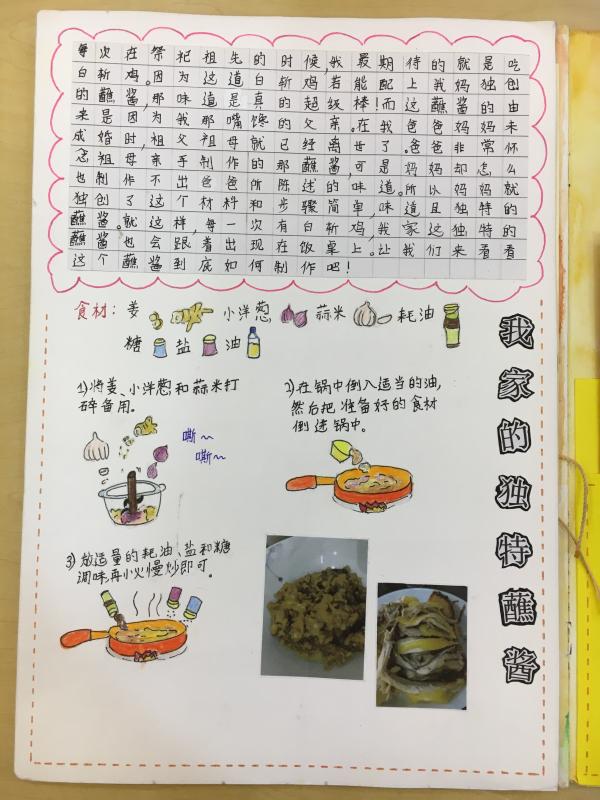 每次在祭祀祖先的时候,我最期待的就是吃
白斩鸡。因为这道白斩鸡若能配上我妈独创
的蘸酱,那味道是真的超级棒!而这蘸酱的由
来是因为我那嘴馋的父亲。在我爸爸妈妈未
成婚时,祖父祖母就已经离世了。爸爸非常怀
念祖母亲手制作的那蘸酱,可是妈妈却怎么
也制作不出爸爸所陈述的味道。所以妈妈就
独创了这个材料和步骤简单,味道且独特的
蘸酱。就这样,每一次有白斩鸡,我家这独特的
蘸酱也会跟着出现在饭桌上。让我们来看看
这个蘸酱到底如何制作吧!
我家的独特蘸酱
食材:姜 小洋葱 蒜米 耗油
糖 盐 油
1)将姜、小洋葱和蒜米打
碎备用。
嘶~
嘶~
2)在锅中倒入适当的油,
然后把准备好的食材
倒进锅中。
3)放适量的耗油、盐和糖
调味,再小火慢炒即可。